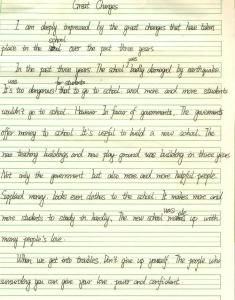 Great Changes
I am deeply impressed by the great changes that have taken
school
place in the over the past three years.
was
In the past three years. The school badly damaged by earthquake.
was for students
It's too dangerous that to go to school and more and more students
wouldn't go to school. However In favor of governments, The governments
offer money to school. It's useful to build a new school. The
new teaching buildings and new play ground was building in three years
Not only the government but also more and more helpful people.
Supplied money, books even clothes to the school. It makes more and
more students to study in hardly. The new school up with
many people's love.
When we get into troubles, Don't give up yourself. The people who
surrounding you can give your love power and confident.